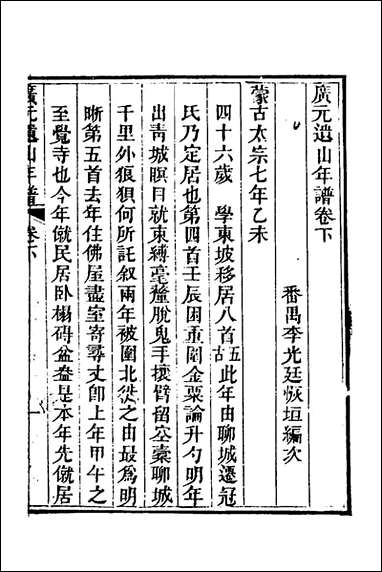 廣元遺山年譜卷下
番禺李光廷恢垣編次
蒙古太宗七年乙未
四十六歲　學東坡移居八首五古此年由聊城遷冠
氏乃定居也第四首壬辰困重圍金粟論升勺明年
出青城瞑目就束縛毫釐脫鬼手攘臂留空橐聊城
千里外狼狽何所託叙兩年被圍北從之由最爲明
晰第五首去年住佛屋盡室寄尋丈卽上年甲午之
至覺寺也今年僦民居臥榻碍盆盎是本年先僦居
廣元遺山年譜　卷下　一